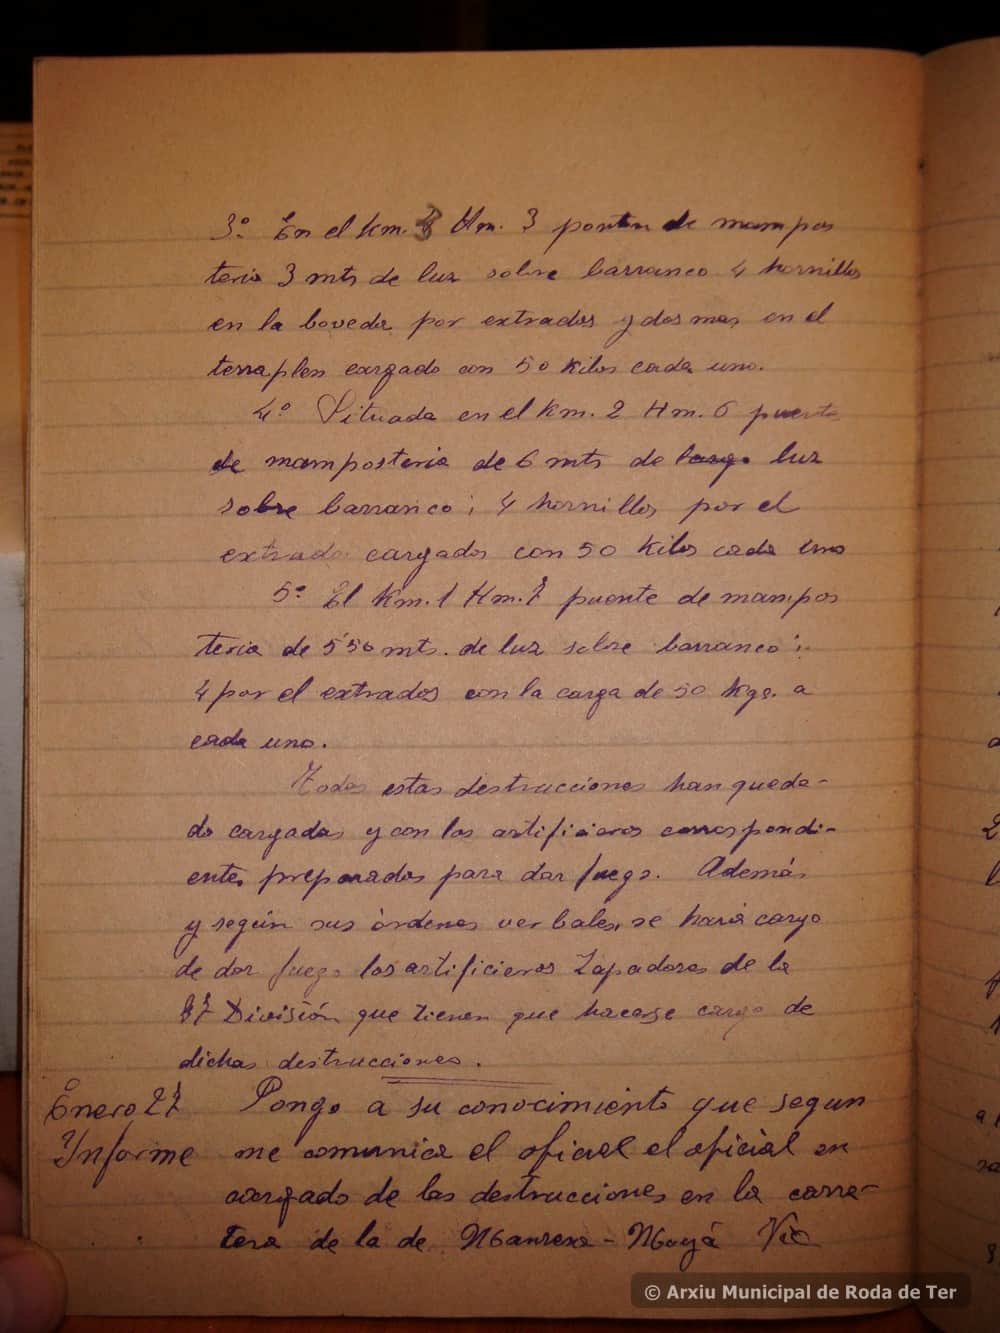 3º En el Km. 3 Hm. 3 ponton de mampos
teria 3 mts de luz sobre barranco 4 hornillos
en la boveda por extrados y dos mas en el
terraplen cargado con 50 kilos cada uno.
4º Situada en el Km. 2 Hm. 6 puente
de mamposteria de 6 mts de largo luz
sobre barranco; 4 hornillos por el
extrados cargados con 50 kilos cada uno
5º El Km. 1 Hm. 7 puente de mampos
teria de 5'50 mts. de luz sobre barranco;
4 por el extrados con la carga de 50 kgs. a
cada uno.
Todas estas destrucciones han queda-
do cargadas y con los artificieros correspondi-
entes preparados para dar fuego. Además
y según sus órdenes verbales, se hará cargo
de dar fuego los artificieros Zapadores de la
27 División que tienen que hacerse cargo de
dichas destrucciones.
Enero 27 Pongo a su conocimiento que segun
Ynforme me comunica el oficial el oficial en
cargado de las destrucciones en la carre-
tera de la de Manresa - Moyá Vic
© Arxiu Municipal de Roda de Ter